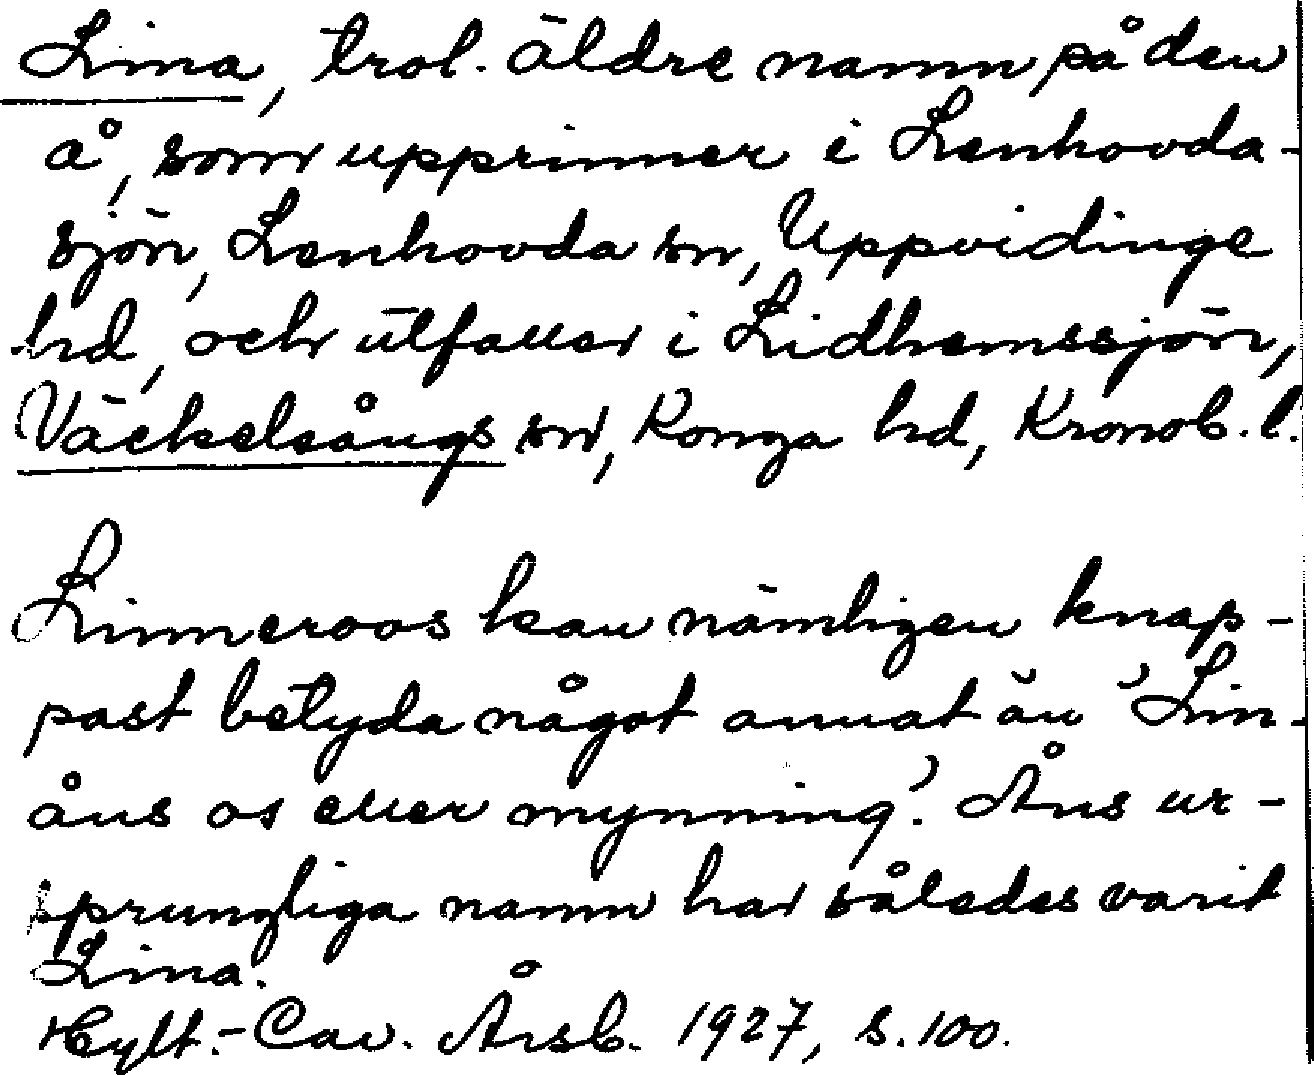 Lina, trol. äldre namn på den
å, som upprinner i Lenhovda-
sjön, Lenhovda sn, Uppvidinge
hd, och utfaller i Lidhemssjön,
Väckelsångs sn, Konga hd, Kronob. l.
Linneroos kan nämligen knap-
past betyda något annat än 'Lin-
åns os eller mynning'. Åns ur-
sprungliga namn har således varit
Lina.
Hylt.-Cav. Årsb. 1927, s. 100.